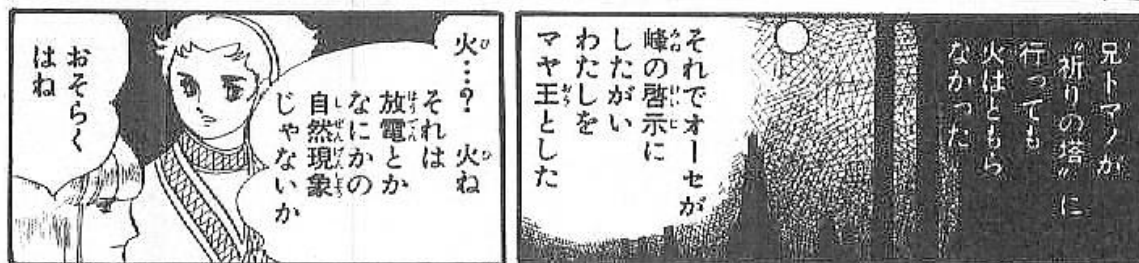 兄トマノが
“祈りの塔”に
行っても
火はともら
なかった
それでオーセが
峰の啓示に
したがい
わたしを
マヤ王とした
火…？ 火ね
それは
放電とか
なにかの
自然現象
じゃないか
おそらく
はね